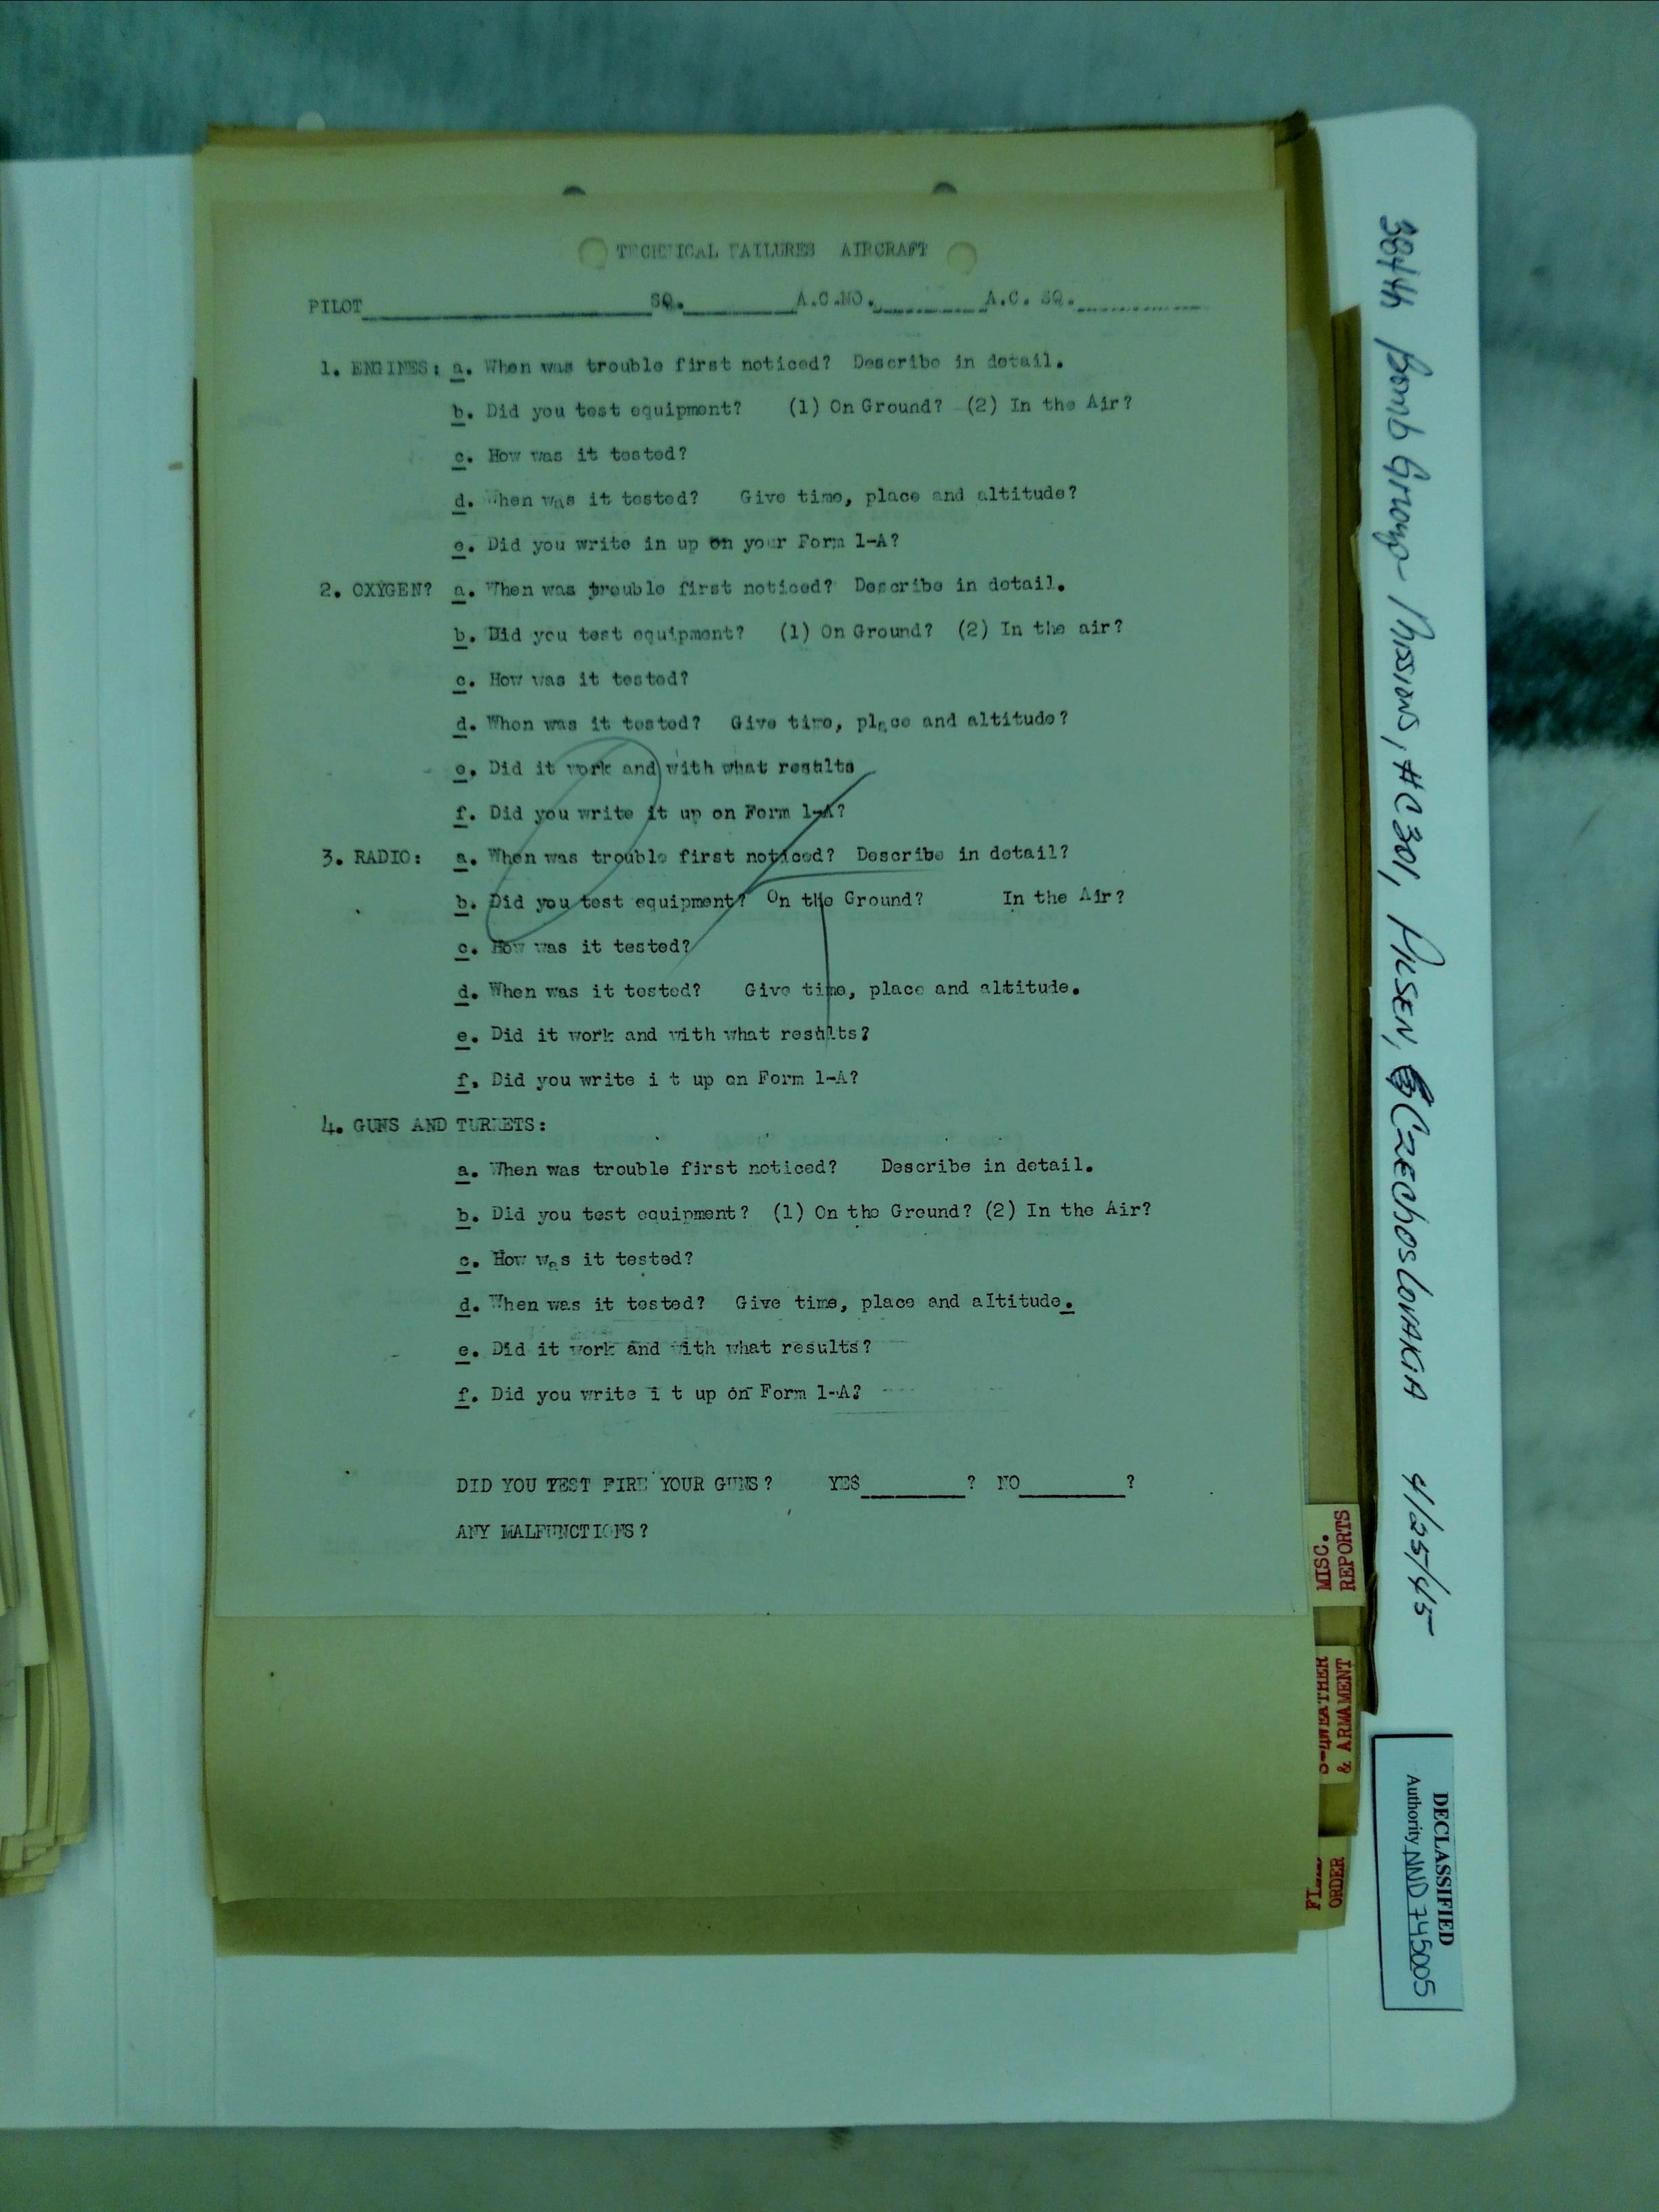 TECHNICAL FAILURES AIRCRAFT
PILOT____________SQ.________A.C.NO.________A.C. SQ.________
1. ENGINES: a. When was trouble first noticed? Describe in detail.
b. Did you test equipment? (1) On Ground? (2) In the Air?
c. How was it tested?
d. When was it tested? Give time, place and altitude?
e. Did you write in up on your Form 1-A?
2. OXYGEN? a. When was trouble first noticed? Describe in detail.
b. Did you test equipment? (1) On Ground? (2) In the air?
c. How was it tested?
d. When was it tested? Give time, place and altitude?
e. Did it work and with what results
f. Did you write it up on Form 1-A?
3. RADIO: a. When was trouble first noticed? Describe in detail?
b. Did you test equipment? On the Ground? In the Air?
c. How was it tested?
d. When was it tested? Give time, place and altitude.
e. Did it work and with what results?
f. Did you write i t up on Form 1-A?
4. GUNS AND TURRETS:
a. When was trouble first noticed? Describe in detail.
b. Did you test equipment? (1) On the Ground? (2) In the Air?
c. How was it tested?
d. When was it tested? Give time, place and altitude.
e. Did it work and with what results?
f. Did you write i t up on Form 1-A?
DID YOU TEST FIRE YOUR GUNS? YES________? NO________?
ANY MALFUNCTIONS?
MISC.
REPORTS
WEATHER
& ARMAMENT
ORDER
384th Bomb Group Missions, #C301, PILSEN, CZECHOSLOVAKIA 4/25/45
DECLASSIFIED
Authority NND 745005